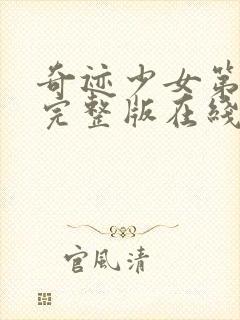 奇迹少女第
完整版在线
官风清